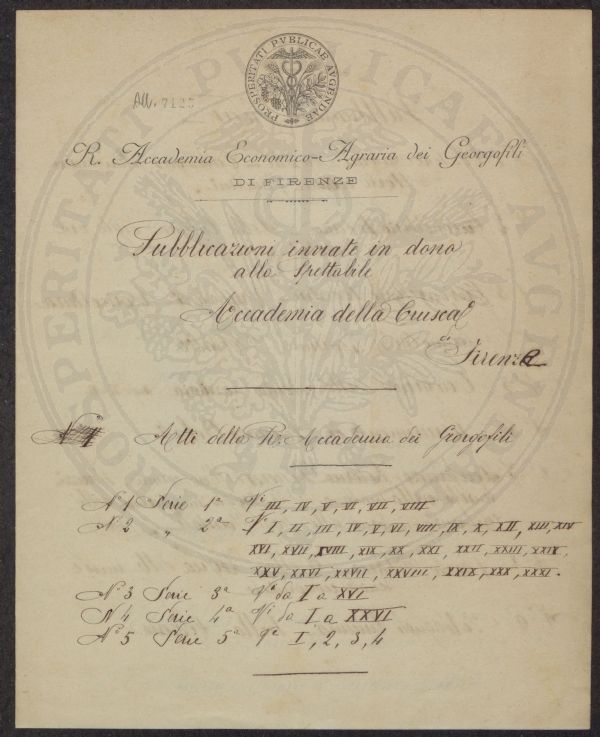 PROSPERITATI PVBLICAE AVGENDAE
All. 7123
R. Accademia Economico-Agraria dei Georgofili
DI FIRENZE
Pubblicazioni inviate in dono
alla Spettabile
Accademia della Crusca
di Firenze
N° 1 Atti della R. Accademia dei Georgofili
N° 1 Serie 1a Vi III, IV, V, VI, VII, VIII
N° 2 „ 2a Vi I, II, III, IV, V, VI, VIII, IX, X, XII, XIII, XIV
XVI, XVII, XVIII, XIX, XX, XXI, XXII, XXIII, XXIX,
XXV, XXVI, XXVII, XXVIII, XXIX, XXX, XXXI.
N° 3 Serie 3a Vi da I a XVI
N° 4 Serie 4a Vi da I a XXVI
N° 5 Serie 5a Vi I, 2, 3, 4